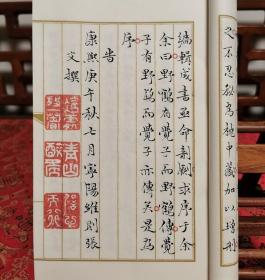 又不忍秘為袖中藏加以增刊
編輯成書亟命剞劂求序于余
余曰野鶴有覺子而野鶴傳覺
子有野鶴而覺子亦傳矣是為
序
旹
康熙庚午秋七月寧陽雖則張
文撰